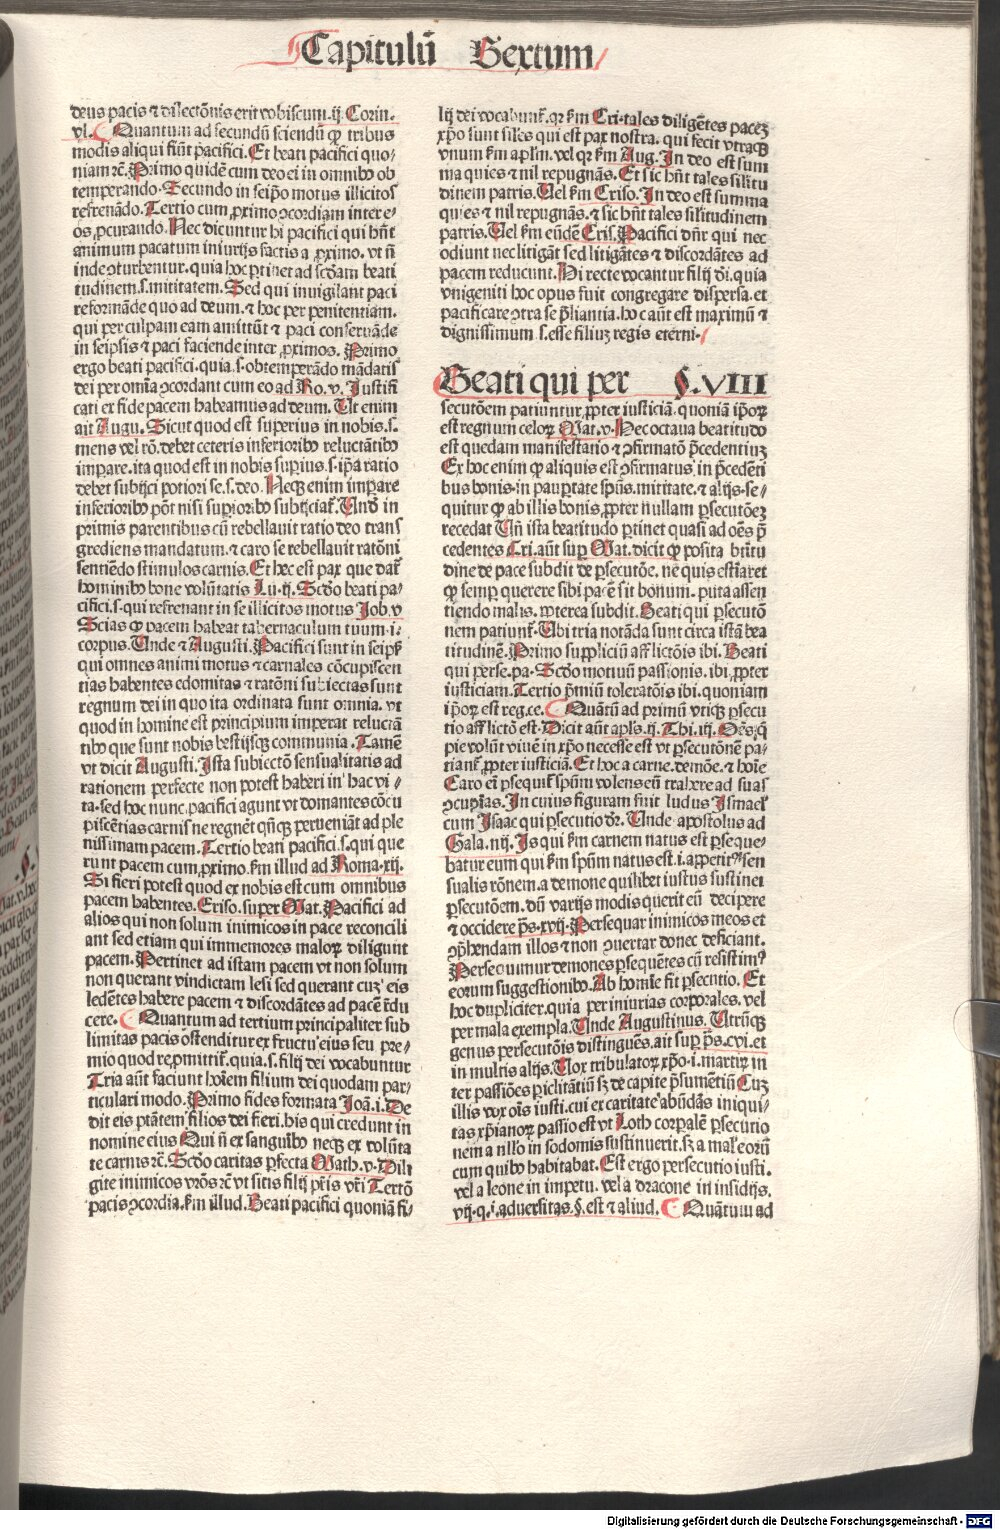 Capitulū Sextum
deus pacis ⁊ dilectōnis erit vobiscum. ij. Corin.
vl. Quantum ad secundū sciendū ꝙ tribus
modis aliqui fiūt pacifici. Et beati pacifici quo-
niam ⁊c. Primo quidē cum deo ei in omnibꝰ ob
temperando. Secundo in seip̄o motus illicitos
refrenādo. Tertio cum ꝓximo ꝯcordiam inter e-
os ꝓcurando. Nec dicuntur hi pacifici qui hn̄t
animum pacatum iniurijs factis a ꝓximo. vt n̄
inde ꝯturbentur. quia hoc ꝑtinet ad scd̄am beati
tudinem. s. mititatem. Sed qui invigilant paci
reformāde quo ad deum. ⁊ hoc per penitentiam.
qui per culpam eam amittūt ⁊ paci conseruāde
in seipsis ⁊ paci faciende inter ꝓximos. Primo
ergo beati pacifici. quia. s. obtemperādo mādatis
dei per omīa ꝯcordant cum eo ad Ro. v. Iustifi
cati ex fide pacem habeamus ad deum. Ut enim
ait Augu. Sicut quod est superius in nobis. s.
mens vel rō. debet ceteris inferioribꝰ reluctātibꝰ
imꝑare. ita quod est in nobis suꝑius. s. ip̄a ratio
debet subijci potiori se. s. deo. Neqꝫ enim imꝑare
inferioribꝰ pōt nisi suꝑioribꝰ subijciat̄. Und̄ in
primis parentibus cū rebellauit ratio deo trans
grediens mandatum. ⁊ caro se rebellauit ratōni
sentiēdo stimulos carnis. Et hec est pax que dat̄
hominibꝰ bone volūtatis Lu. ij. Scd̄o beati pa-
cifici. s. qui refrenant in se illicitos motus Job. v
Scias ꝙ pacem habeat tabernaculum tuum. i.
corpus. Unde ⁊ Augusti. Pacifici sunt in seipẜ
qui omnes animi motus ⁊ carnales cōcupiscen
tias habentes edomitas ⁊ ratōni subiectas sunt
regnum dei in quo ita ordinata sunt omnia. vt
quod in homine est principium imperat reluctā
tibꝰ que sunt nobis bestijsqꝫ communia. Tamē
vt dicit Augusti. Ista subiectō sensualitatis ad
rationem perfecte non potest haberi in hac vi-
ta. sed hoc nunc pacifici agunt vt domantes cōcu
piscētias carnis ne regnēt qn̄qꝫ perueniāt ad ple
nissimam pacem. Tertio beati pacifici. s. qui que
runt pacem cum ꝓximo. ẜm illud ad Roma. xij.
Si fieri potest quod ex nobis est cum omnibus
pacem habentes. Criso. super Mat. Pacifici ad
alios qui non solum inimicos in pace reconcili
ant sed etiam qui immemores maloꝝ diligunt
pacem. Pertinet ad istam pacem vt non solum
non querant vindictam lesi sed querant cuꝫ eis
ledētes habere pacem ⁊ discordātes ad pacē r̄du
cere. Quantum ad tertium principaliter sub
limitas pacis ostenditur ex fructu eius seu pre-
mio quod reꝓmittit̄. quia. s. filij dei vocabuntur
Tria aūt faciunt hoīem filium dei quodam par-
ticulari modo. Primo fides formata Joā. i. De
dit eis ptātem filios dei fieri. his qui credunt in
nomine eius Qui n̄ ex sanguībꝰ neqꝫ ex volūta
te carnis ⁊c. Scd̄o caritas ꝑfecta Math. v. Dili
gite inimicos vr̄os ⁊c vt sitis filij pr̄is vr̄i Tertō
pacis ꝯcordia. ẜm illud. Beati pacifici quoniā fi-
lij dei vocabunt̄. qꝛ ẜm Cri. tales diligētes paceꝫ
xp̄o sunt siles qui est pax nostra. qui fecit vtraqꝫ
vnum ẜm apl̄m. vel qꝛ ẜm Aug. In deo est sum
ma quies ⁊ nil repugnās. Et sic hn̄t tales silitu
dinem patris. Uel ẜm Criso. In deo est summa
quies ⁊ nil repugnās. ⁊ sic hn̄t tales silitudinem
patris. Uel ẜm eūdē Cris. Pacifici dn̄r qui nec
odiunt nec litigāt sed litigātes ⁊ discordātes ad
pacem reducunt. Hi recte vocantur filij d̄i. quia
vnigeniti hoc opus fuit congregare dispersa. et
pacificare ꝯtra se p̄liantia. hoc aūt est maximū ⁊
dignissimum. s. esse filiuꝫ regis eterni.
Beati qui per §. VIII
secutōem patiuntur ꝓpter iusticiā. quoniā ip̄oꝝ
est regnum celoꝝ Mat. v. Hec octaua beatitudo
est quedam manifestatio ⁊ ꝯfirmatō p̄cedentiuꝫ
Ex hoc enim ꝙ aliquis est ꝯfirmatus in p̄cedēti
bus bonis. in pauꝑtate sp̄us. mititate. ⁊ alijs. se-
quitur ꝙ ab illis bonis ꝓpter nullam ꝑsecutōeꝫ
recedat Un̄ ista beatitudo ꝑtinet quasi ad oēs p̄
cedentes Cri. aūt suꝑ Mat. dicit ꝙ posita btītu
dine de pace subdit de ꝑsecutōe. ne quis estiaret
ꝙ semꝑ querere sibi pacē sit bonum. puta assen
tiendo malis. ꝓpterea subdit. Beati qui ꝑsecutō
nem patiunt̄. Ubi tria notāda sunt circa istā bea
titudinē. Primo suppliciū afflictōis ibi. Beati
qui perse. pa. Scd̄o motiuū passionis. ibi. ꝓpter
iusticiam. Tertio p̄miū toleratōis ibi. quoniam
ip̄oꝝ est reg. ce. Quātū ad primū vtiqꝫ ꝑsecu
tio afflictō est. Dicit aūt apl̄s. ij. Thi. iij. Oēs q̄
pie volūt viuē in xp̄o necesse est vt ꝑsecutōnē pa-
tiant̄ ꝓpter iusticiā. Et hoc a carne. demōe. ⁊ hoīe
Caro em̄ ꝑsequit̄ sp̄um volens eū trahere ad suas
ꝯcupīas. In cuius figuram fuit ludus Ismael
cum Isaac qui ꝑsecutio d̄r. Unde apostolus ad
Gala. iiij. Is qui ẜm carnem natus est ꝑseque-
batur eum qui ẜm sp̄um natus est. i. appetitꝰ sen
sualis rōnem. a demone quilibet iustus sustinet
ꝑsecutōem. dū varijs modis querit eū decipere
⁊ occidere p̄s. xvij. Persequar inimicos meos et
ꝯp̄hendam illos ⁊ non ꝯuertar donec deficiant.
Persequimur demones ꝑsequētes cū resistimꝰ
eorum suggestionibꝰ. Ab homīe fit ꝑsecutio. Et
hoc dupliciter. quia per iniurias corporales. vel
per mala exempla. Unde Augustinus. Utrūqꝫ
genus persecutōis distinguēs. ait suꝑ p̄s. cvi. et
in multis alijs. Uox tribulatoꝝ xp̄o. i. martiꝝ in
ter passiōes ꝑiclitātiū sꝫ de capite p̄sumētiū Cuꝫ
illis vox oīs iusti. cui ex caritate abūdās iniqui-
tas xp̄ianoꝝ passio est vt Loth corꝑalē ꝑsecutio
nem a nllo in sodomis sustinuerit. sꝫ a mal' eorū
cum quibꝰ habitabat. Est ergo persecutio iusti.
vel a leone in impetu. vel a dracone in insidijs.
vij. q. i. aduersitas. §. est ⁊ aliud. Quātum ad
Digitalisierung gefördert durch die Deutsche Forschungsgemeinschaft - DFG